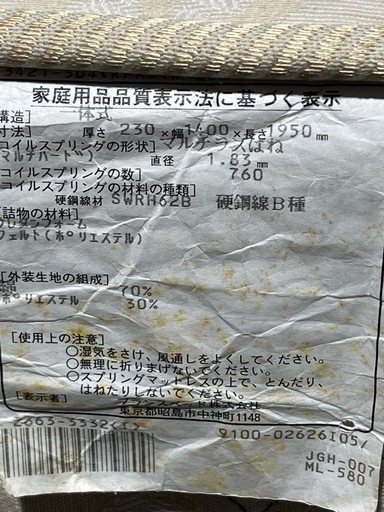 家庭用品品質表示法に基づく表示
構造] 一体式
寸法] 厚さ 230×幅1400×長さ1950mm
コイルスプリングの形状] マルチラスばね
マルチハード) 直径 1.83mm
コイルスプリングの数] 760
コイルスプリングの材料の種類]
硬鋼線材 SWRH62B 硬鋼線B種
[詰物の材料]
ウレタンフォーム
フェルト(ポリエステル)
[外装生地の組成]
綿 70%
ポリエステル 30%
[使用上の注意]
○湿気をさけ、風通しをよくしてください。
○無理に折りまげないでください。
○スプリングマットレスの上で、とんだり、
はねたりしないでください。
[表示者]
東京都昭島市中神町1148
2663-3332<1>
9100-02626I05/
JGH-007
ML-580